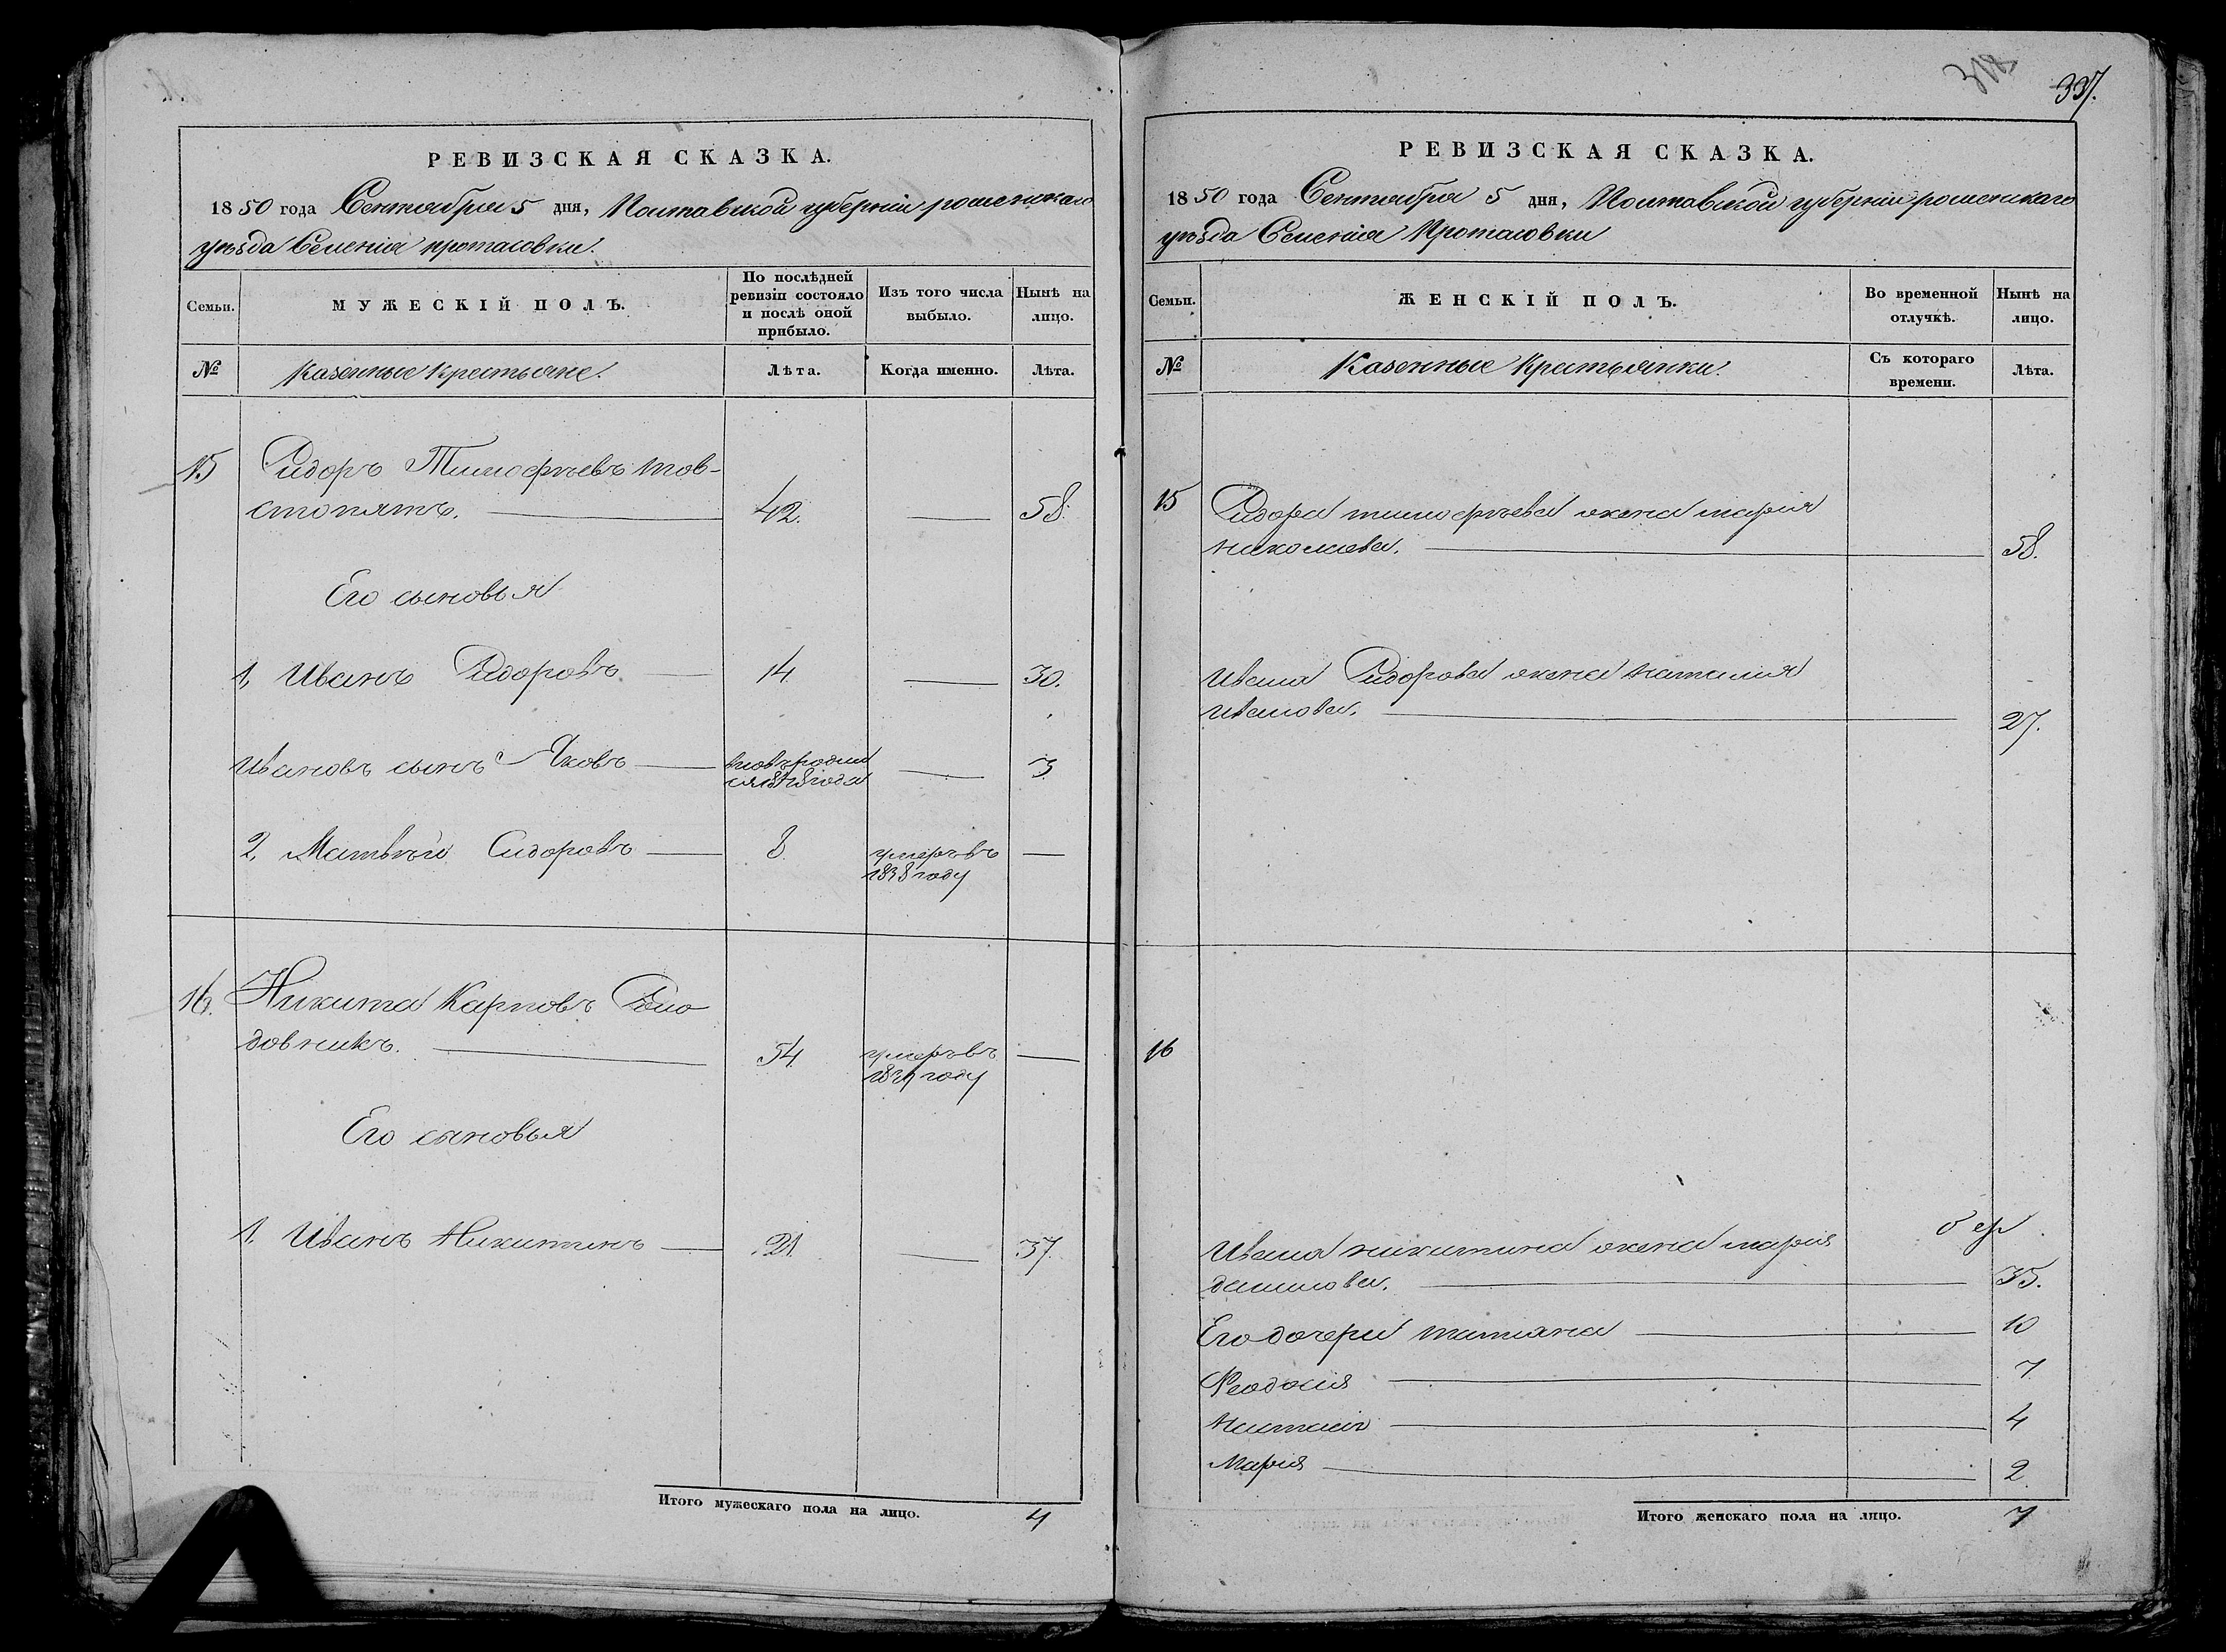 РЕВИЗСКАЯ СКАЗКА.
1850 года Сентября 5 дня, Полтавской губерніи роменскаго
уѣзда Селенія протасовки.
Семьи.
МУЖЕСКІЙ ПОЛЪ.
По послѣдней
ревизіи состояло
и послѣ оной
прибыло.
Изъ того числа
выбыло.
Нынѣ на
лицо.
№
Казенные крестьяне.
Лѣта.
Когда именно.
Лѣта.
15 Сидоръ Тимофѣевъ Тов-
стопятъ. 42. 58.
Его сыновья
1, Иванъ Сидоровъ 14. 30.
Ивановъ сынъ Яковъ вновь родил
ся 1848 года 3
2, Матвѣй Сидоровъ 8. умеръ въ
1838 году
16. Никита Карповъ
довникъ. 54. умеръ въ
году
Его сыновья
1. Иванъ Никитинъ 21. 37.
Итого мужескаго пола на лицо. 4
318
337.
РЕВИЗСКАЯ СКАЗКА.
1850 года Сентября 5 дня, Полтавской губерніи роменскаго
уѣзда Селенія Протасовки
Семьи.
ЖЕНСКІЙ ПОЛЪ.
Во временной
отлучкѣ.
Нынѣ на
лицо.
№
Казенные крестьянки.
Съ котораго
времени.
Лѣта.
15 Сидора тимофѣева жена марія
николаева. 58.
Ивана Сидорова жена наталия
иванова. 27.
16
Ивана никитина жена марія
данилова. 35.
Его дочери татіяна 10
Феодосія 7
Наталія 4
Марія 2
Итого женскаго пола на лицо. 7